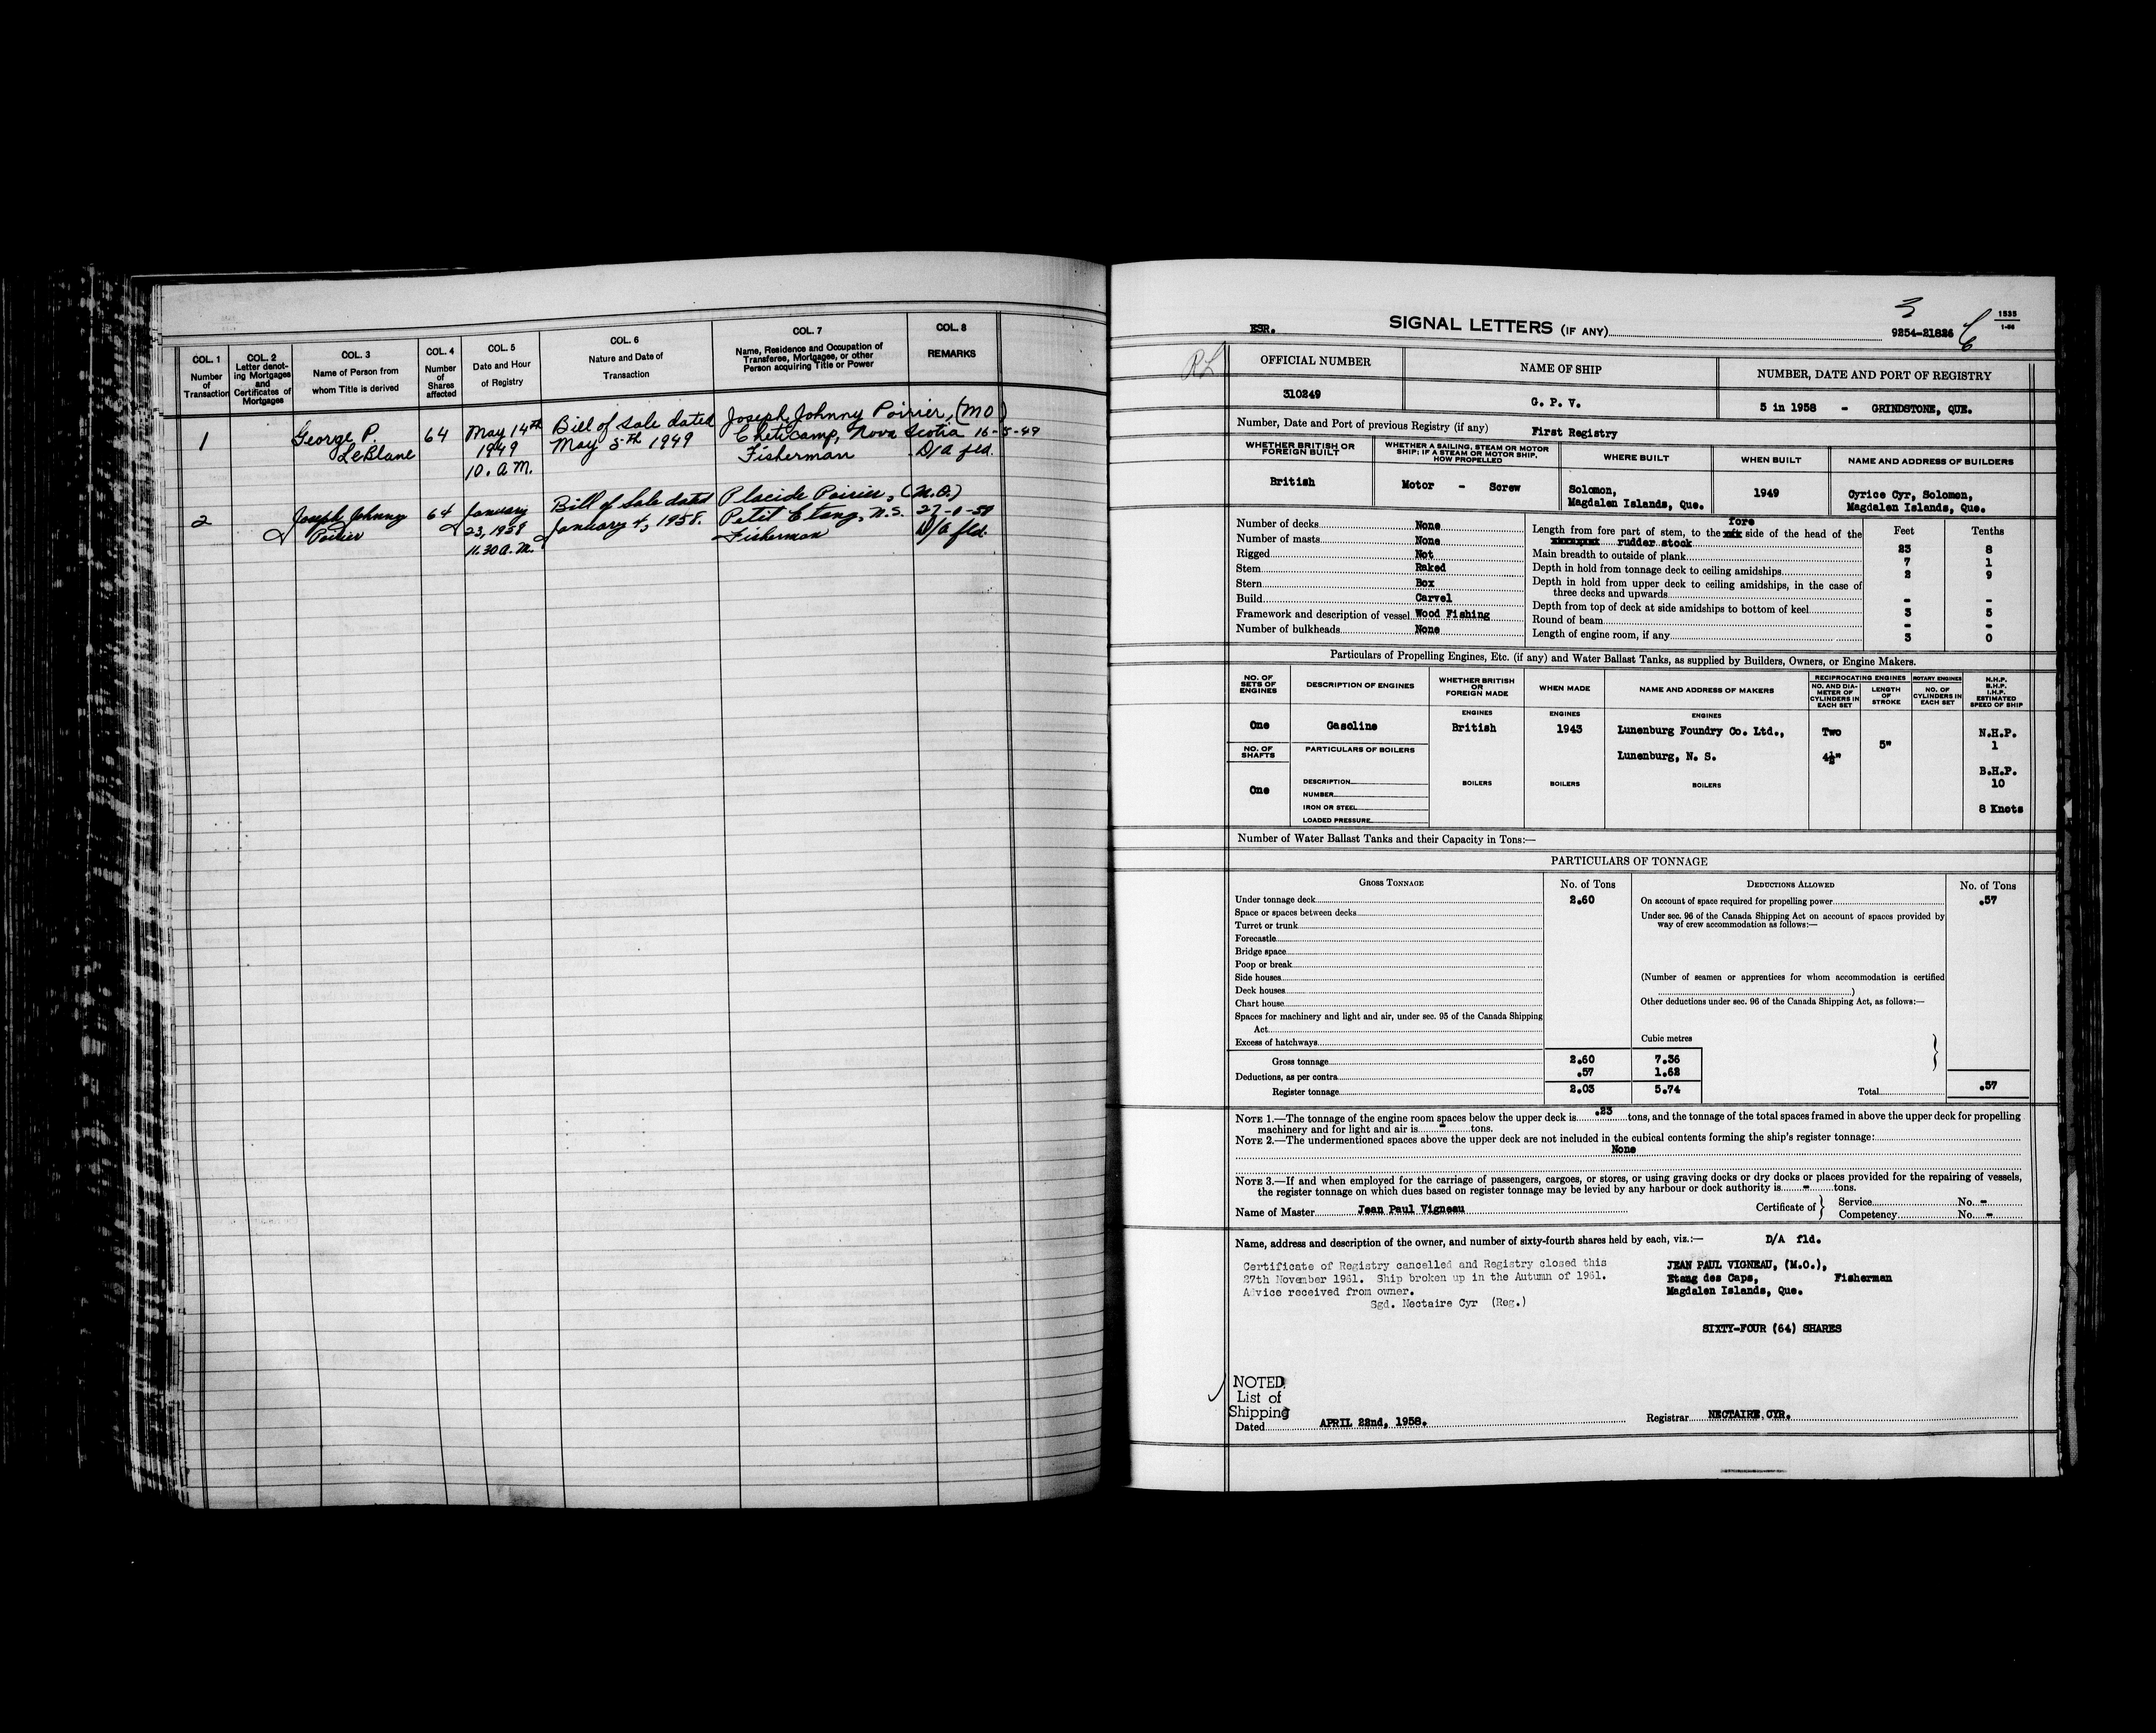 COL. 1
Number
of
Transaction
COL. 2
Letter denot-
ing Mortgages
and
Certificates of
Mortgages
COL. 3
Name of Person from
whom Title is derived
COL. 4
Number
of
Shares
affected
COL. 5
Date and Hour
of Registry
COL. 6
Nature and Date of
Transaction
COL. 7
Name, Residence and Occupation of
Transferee, Mortgagee, or other
Person acquiring Title or Power
COL. 8
REMARKS
1 George P. LeBlanc 64 May 14th 1949 10. A.M. Bill of Sale dated May 5th 1949 Joseph Johnny Poirier, (MO) Cheticamp, Nova Scotia Fisherman 16-5-49 D/A fld.
2 Joseph Johnny Poirier 64 January 23, 1959 11.30 A.M. Bill of Sale dated January 4, 1958. Placide Poirier, (M.O.) Petit Etang, N.S. Fisherman D/A fld.
3
ESR. SIGNAL LETTERS (IF ANY) 9254-21826 1535
1-56
OFFICIAL NUMBER NAME OF SHIP NUMBER, DATE AND PORT OF REGISTRY
310249 G. P. V. 5 in 1958 - GRINDSTONE, QUE.
Number, Date and Port of previous Registry (if any) First Registry
WHETHER BRITISH OR FOREIGN BUILT
WHETHER A SAILING, STEAM OR MOTOR SHIP; IF A STEAM OR MOTOR SHIP, HOW PROPELLED
WHERE BUILT
WHEN BUILT
NAME AND ADDRESS OF BUILDERS
British Motor - Screw Solomon, Magdalen Islands, Que. 1949 Cyrice Cyr, Solomon, Magdalen Islands, Que.
Number of decks None
Number of masts None
Rigged Not
Stem Raked
Stern Box
Build Carvel
Framework and description of vessel Wood Fishing
Number of bulkheads None
Feet Tenths
Length from fore part of stem, to the fore side of the head of the rudder stock 23 8
Main breadth to outside of plank 7 1
Depth in hold from tonnage deck to ceiling amidships 2 9
Depth in hold from upper deck to ceiling amidships, in the case of
three decks and upwards - -
Depth from top of deck at side amidships to bottom of keel 3 5
Round of beam - -
Length of engine room, if any 3 0
Particulars of Propelling Engines, Etc. (if any) and Water Ballast Tanks, as supplied by Builders, Owners, or Engine Makers.
NO. OF SETS OF ENGINES
DESCRIPTION OF ENGINES
WHETHER BRITISH OR FOREIGN MADE
WHEN MADE
NAME AND ADDRESS OF MAKERS
RECIPROCATING ENGINES
NO. AND DIAMETER OF CYLINDERS IN EACH SET
LENGTH OF STROKE
ROTARY ENGINES
NO. OF CYLINDERS IN EACH SET
N.H.P.
B.H.P.
I.H.P.
ESTIMATED SPEED OF SHIP
ENGINES ENGINES ENGINES
One Gasoline British 1943 Lunenburg Foundry Co. Ltd., Two N.H.P.
1
NO. OF SHAFTS PARTICULARS OF BOILERS Lunenburg, N. S. 4½" 5"
B.H.P.
10
One DESCRIPTION BOILERS BOILERS BOILERS
NUMBER
IRON OR STEEL 8 Knots
LOADED PRESSURE
Number of Water Ballast Tanks and their Capacity in Tons:—
PARTICULARS OF TONNAGE
GROSS TONNAGE No. of Tons DEDUCTIONS ALLOWED No. of Tons
Under tonnage deck 2.60 On account of space required for propelling power .57
Space or spaces between decks
Turret or trunk
Forecastle
Bridge space
Poop or break
Side houses
Deck houses
Chart house
Spaces for machinery and light and air, under sec. 95 of the Canada Shipping
Act
Excess of hatchways
Under sec. 96 of the Canada Shipping Act on account of spaces provided by
way of crew accommodation as follows:—
(Number of seamen or apprentices for whom accommodation is certified
)
Other deductions under sec. 96 of the Canada Shipping Act, as follows:—
Cubic metres
Gross tonnage 2.60 7.36
Deductions, as per contra .57 1.62
Register tonnage 2.03 5.74 Total .57
NOTE 1.—The tonnage of the engine room spaces below the upper deck is .23 tons, and the tonnage of the total spaces framed in above the upper deck for propelling
machinery and for light and air is - tons.
NOTE 2.—The undermentioned spaces above the upper deck are not included in the cubical contents forming the ship's register tonnage:
None
NOTE 3.—If and when employed for the carriage of passengers, cargoes, or stores, or using graving docks or dry docks or places provided for the repairing of vessels,
the register tonnage on which dues based on register tonnage may be levied by any harbour or dock authority is - tons.
Name of Master Jean Paul Vigneau Certificate of Service No. -
Competency No. -
Name, address and description of the owner, and number of sixty-fourth shares held by each, viz.:— D/A fld.
Certificate of Registry cancelled and Registry closed this
27th November 1961. Ship broken up in the Autumn of 1961.
Advice received from owner.
Sgd. Nectaire Cyr (Reg.)
JEAN PAUL VIGNEAU, (M.O.),
Etang des Caps, Fisherman
Magdalen Islands, Que.
SIXTY-FOUR (64) SHARES
NOTED
List of
Shipping
Dated APRIL 22nd, 1958. Registrar NECTAIRE CYR.